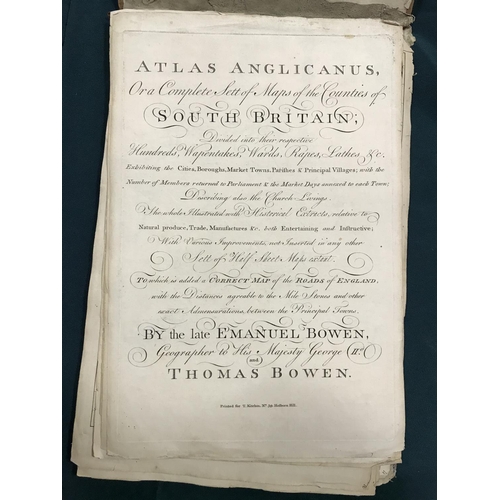 ATLAS ANGLICANUS,
Or a Complete Sett of Maps of the Counties of
SOUTH BRITAIN;
Divided into their respective
Hundreds, Wapentakes, Wards, Rapes, Lathes, &c.
Exhibiting the Cities, Boroughs, Market Towns, Parishes & Principal Villages; with the
Number of Members returned to Parliament & the Market Days annexed to each Town;
Describing also the Church Livings.
The whole Illustrated with Historical Extracts, relative to
Natural produce, Trade, Manufactures &c. both Entertaining and Instructive;
With Various Improvements, not Inserted in any other
Sett of Half Sheet Maps extant.
To which is added a CORRECT MAP of the ROADS of ENGLAND,
with the Distances agreeable to the Mile Stones and other
exact Admeasurations, between the Principal Towns.
BY the late EMANUEL BOWEN,
Geographer to His Majesty George II.d
and
THOMAS BOWEN.
Printed for T. Kitchin,